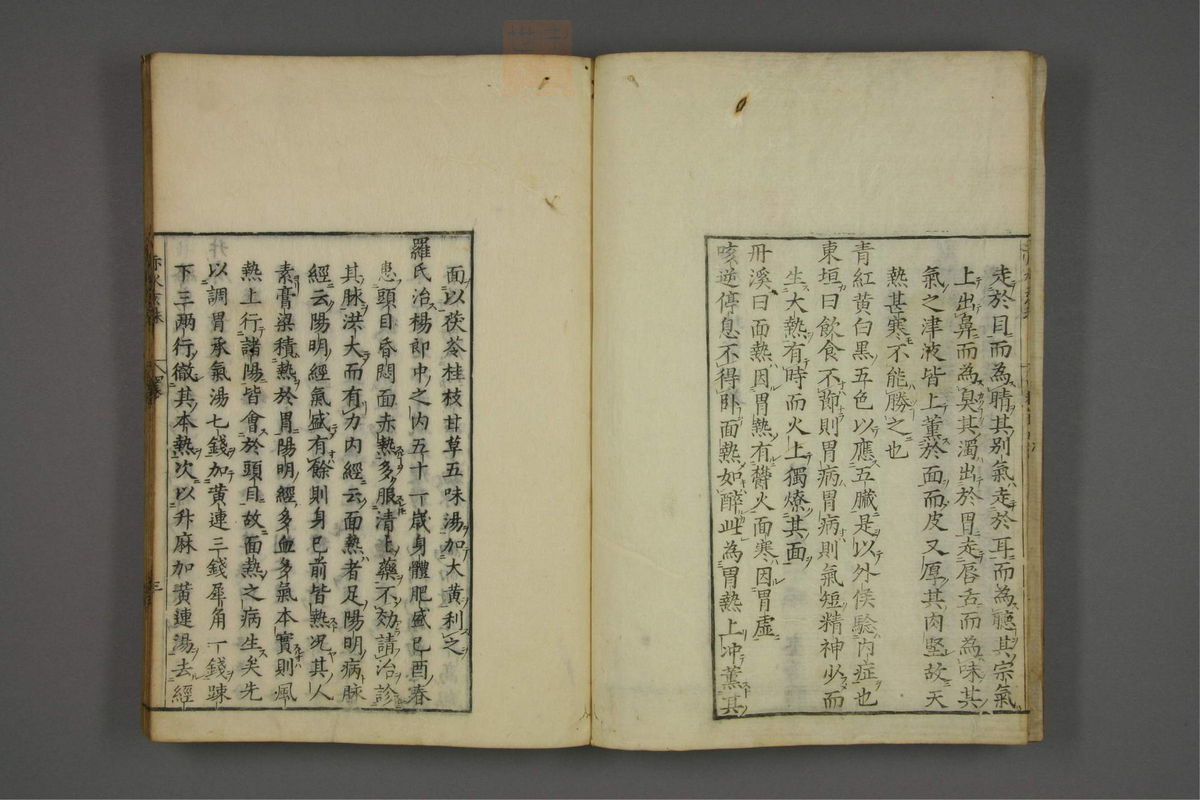 走於目而為睛其别氣走於耳而為聽其宗氣
上出鼻而為臭其濁出於胃走唇舌而為味其
氣之津液皆上薰於面而皮又厚其肉堅故天
熱甚寒不能勝之也
青紅黄白黒五色以應五臓是以外候驗内症也
東垣曰飲食不節則胃病胃病則氣短精神少而
生大熱有時而火上獨燎其面
丹溪曰面熱因胃熱有欝火面寒因胃虚
咳逆停息不得卧面熱如醉此為胃熱上冲薰其
面以茯苓桂枝甘草五味湯加大黄利之
羅氏治楊郎中之内五十一歳身體肥盛己酉春
患頭目昏悶面赤熱多服清上藥不効請治診
其脉洪大而有力内經云面熱者足陽明病脉
經云陽明經氣盛有餘則身已前皆熱况其人
素膏粱積熱於胃陽明經多血多氣本實則風
熱上行諸陽皆會於頭目故面熱之病生矣先
以調胃承氣湯七錢加黄連三錢犀角一錢踈
下三兩行徹其本熱次以升麻加黄連湯去經